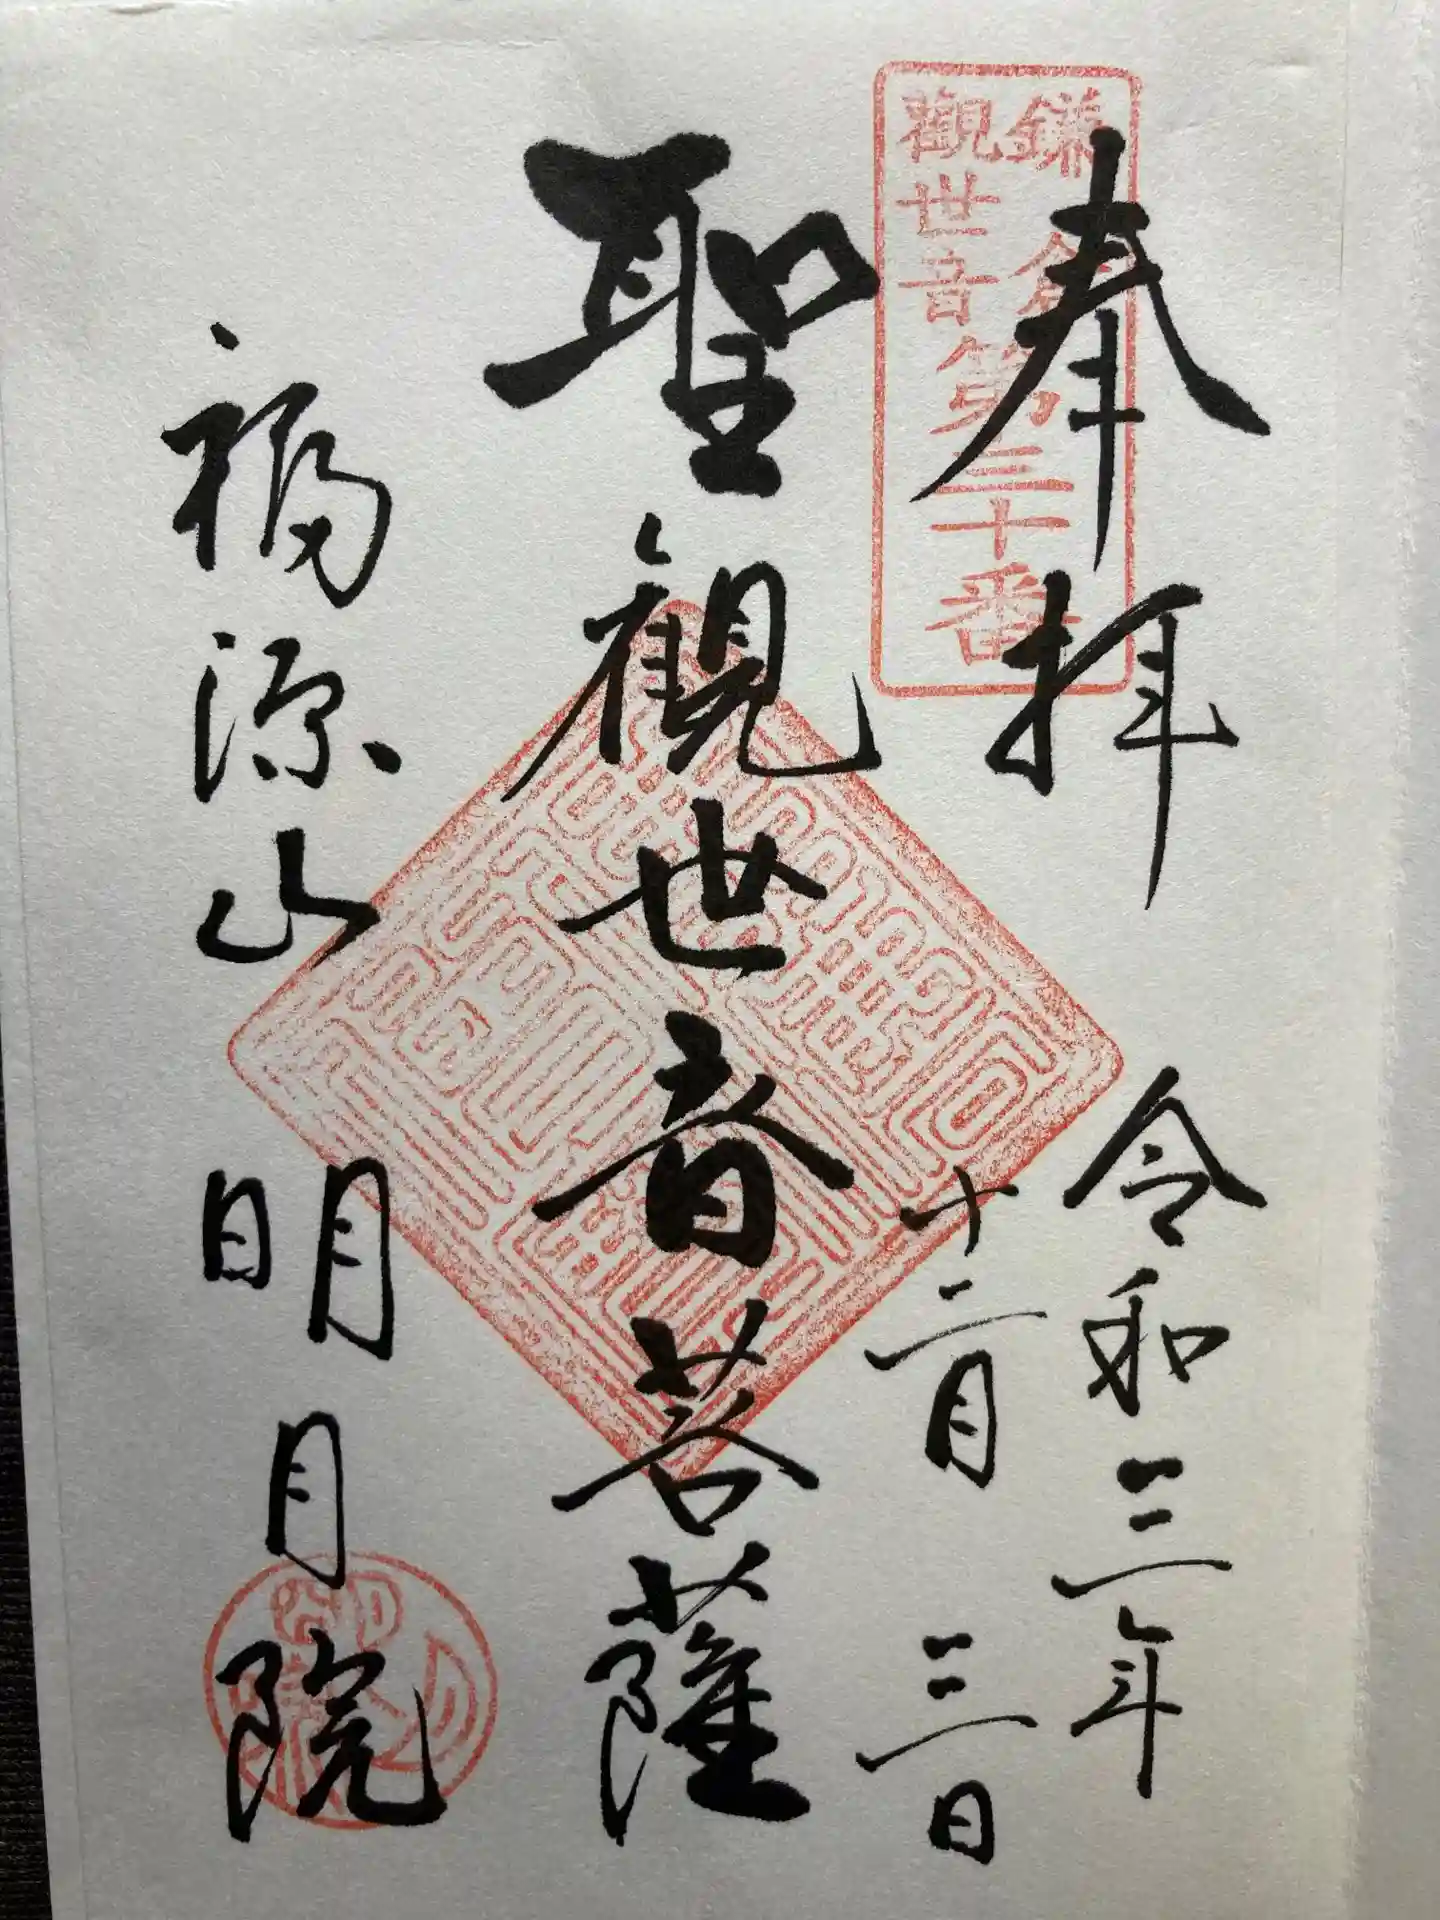 奉拝
鎌倉
觀世音
第三十番
令和三年
十二月三日
聖観世音菩薩
福源山明月院